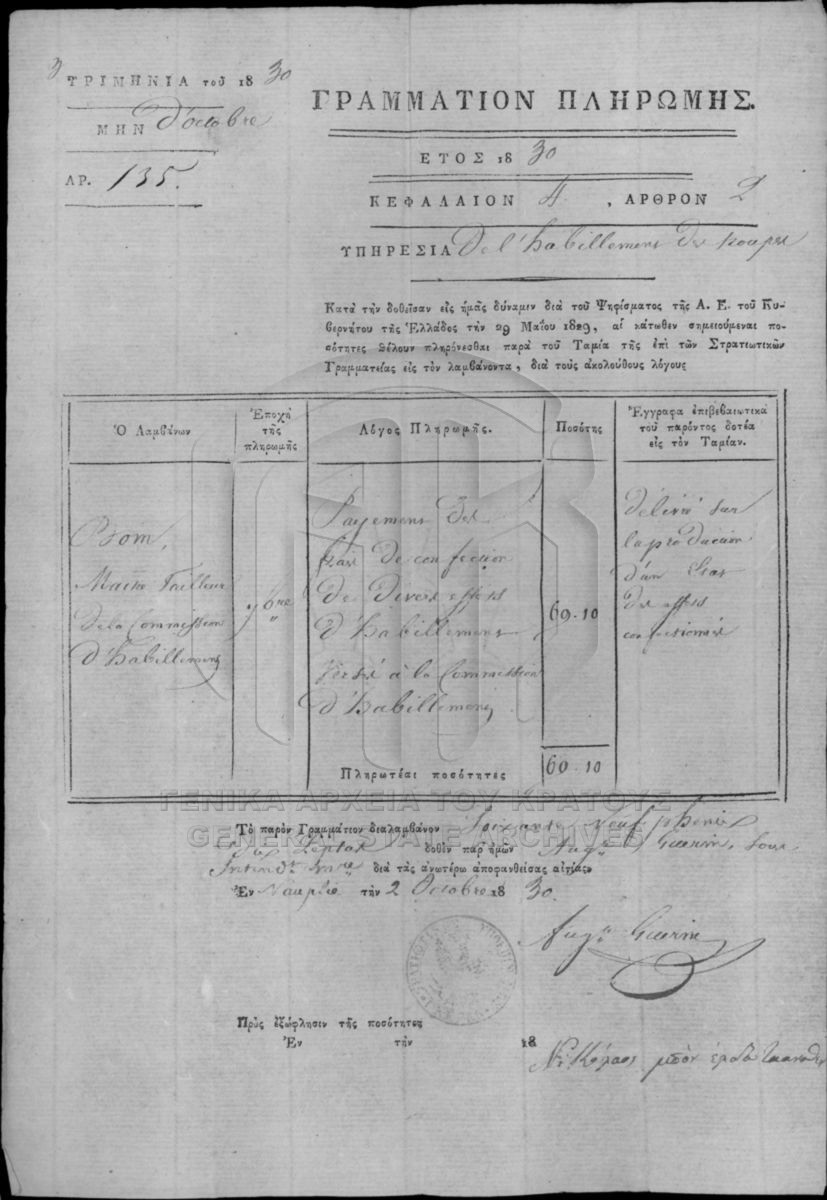 3
ΤΡΙΜΗΝΙΑ τοῦ 18 30
ΜΗΝ d'octobre
ΑΡ. 135.
ΓΡΑΜΜΑΤΙΟΝ ΠΛΗΡΩΜΗΣ.
ΕΤΟΣ 18 30
ΚΕΦΑΛΑΙΟΝ 4 , ΑΡΘΡΟΝ 2
ΥΠΗΡΕΣΙΑ De l'habillement des troupes
Κατὰ τὴν δοθεῖσαν εἰς ἡμᾶς δύναμιν διὰ τοῦ Ψηφίσματος τῆς Α. Ε. τοῦ Κυ-
βερνήτου τῆς Ἑλλάδος τὴν 29 Μαΐου 1829, αἱ κάτωθεν σημειούμεναι πο-
σότητες θέλουν πληρόνεσθαι παρὰ τοῦ Ταμία τῆς ἐπὶ τῶν Στρατιωτικῶν
Γραμματείας εἰς τὸν λαμβάνοντα, διὰ τοὺς ἀκολούθους λόγους
Ὁ Λαμβάνων
Ἐποχὴ
τῆς
πληρωμῆς
Λόγος Πληρωμῆς.
Ποσότης
Ἔγγραφα ἐπιβεβαιωτικὰ
τοῦ παρόντος δοτέα
εἰς τὸν Ταμίαν.
Maitre Tailleur
de la Commission
d'habillement
7bre
Payement des
frais de confection
de divers effets
d'habillement
versés à la Commission
d'habillement
69.10
délivré sur
la production
d'un Etat
des effets
confectionnés
Πληρωτέαι ποσότητες
69.10
ΓΕΝΙΚΑ ΑΡΧΕΙΑ ΤΟΥ ΚΡΑΤΟΥΣ
GENERAL STATE ARCHIVES
Τὸ παρὸν Γραμμάτιον διαλαμβάνον Soixante Neuf phenix
dix Leptas δοθὲν παρ' ἡμῶν Augte Guerin, Sous
Intendt mre διὰ τὰς ἀνωτέρω ἀποφανθείσας αἰτίας
Ἐν Nauplie τὴν 2 Octobre 18 30.
Augte Guerin
Πρὸς ἐξώφλησιν τῆς ποσότητος
Ἐν τὴν 18
Νικόλαος